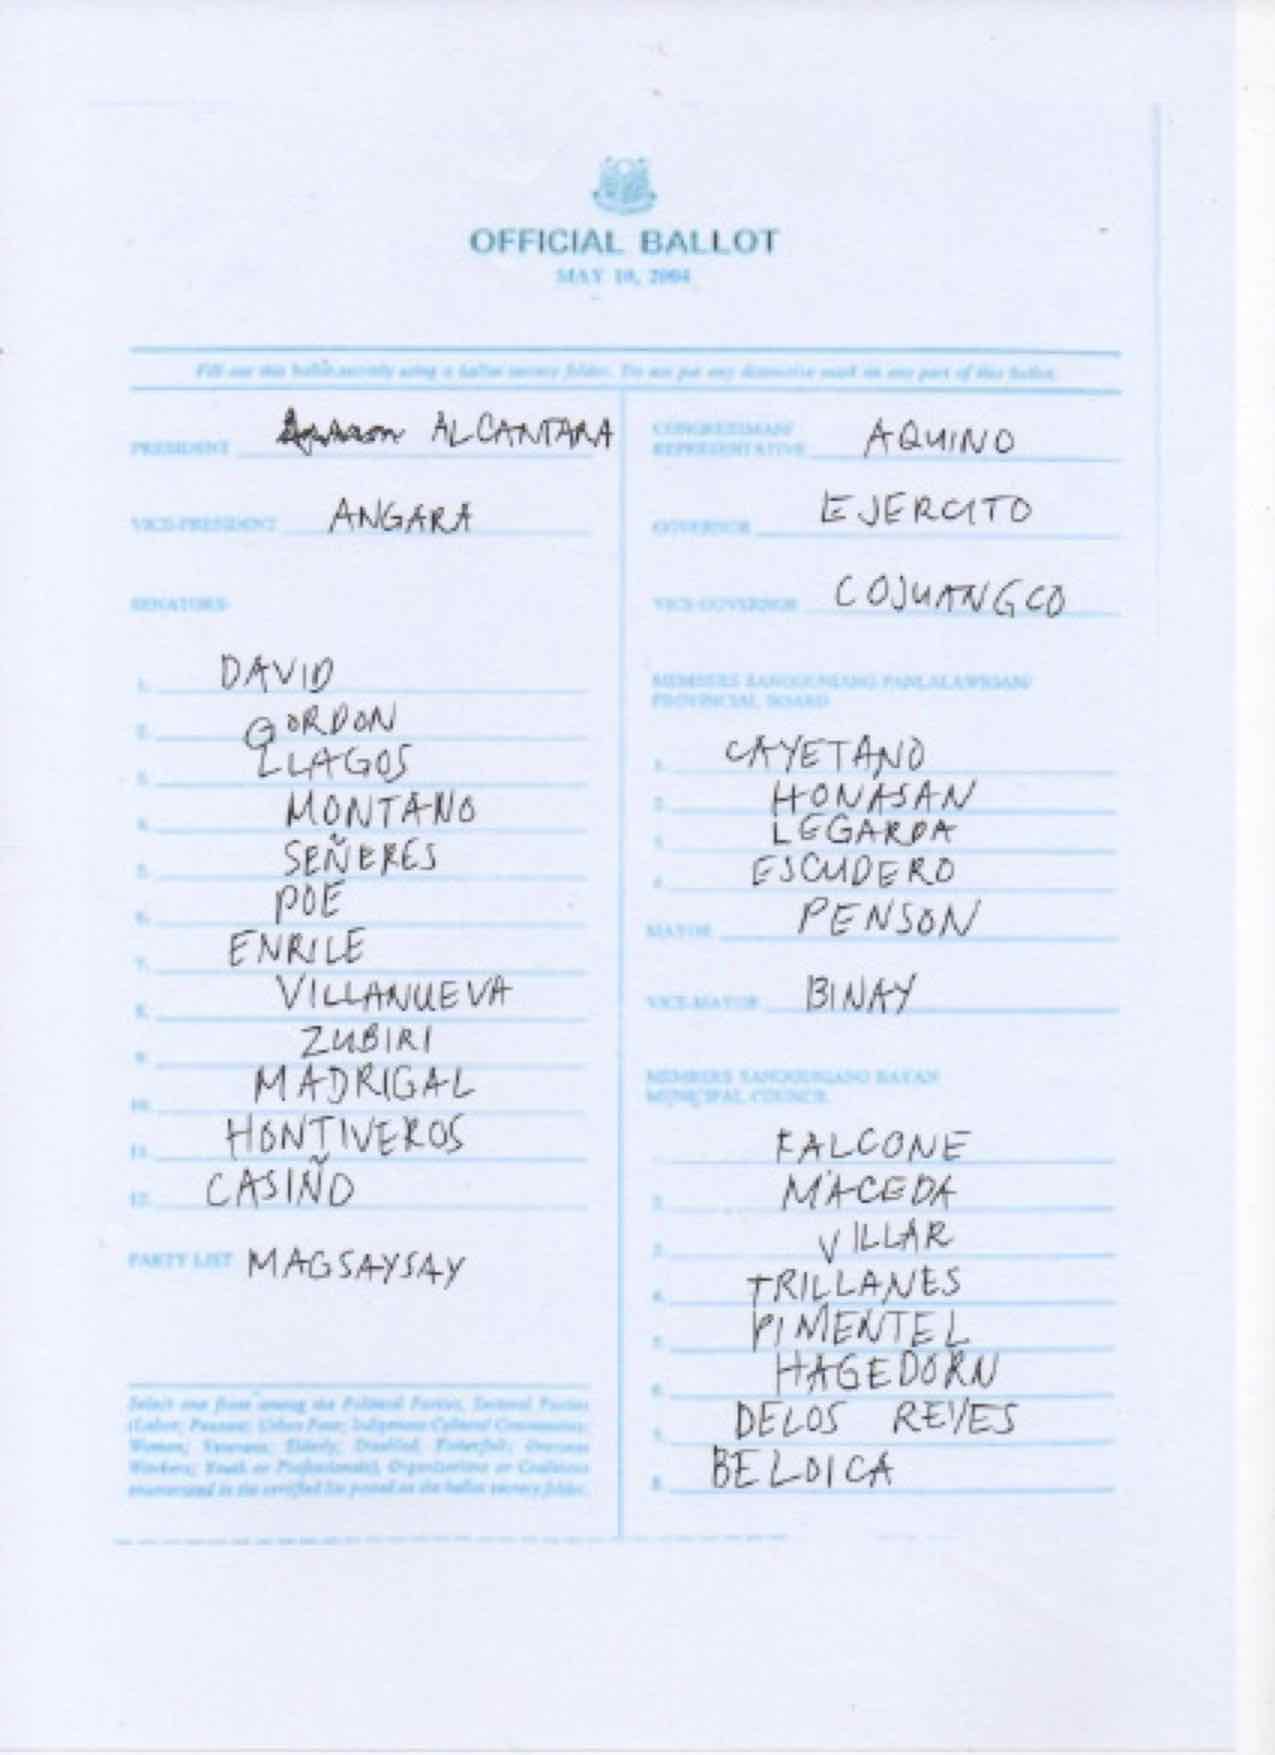 OFFICIAL BALLOT
MAY 10, 2004
Fill out this ballot secretly using a ballot secrecy folder. Do not put any distinctive mark on any part of this ballot.
PRESIDENT ALCANTARA
VICE-PRESIDENT ANGARA
SENATORS
1. DAVID
2. GORDON
3. LLAGOS
4. MONTANO
5. SEÑERES
6. POE
7. ENRILE
8. VILLANUEVA
9. ZUBIRI
10. MADRIGAL
11. HONTIVEROS
12. CASIÑO
PARTY LIST MAGSAYSAY
Select one from among the Political Parties, Sectoral Parties
(Labor; Peasant; Urban Poor; Indigenous Cultural Communities;
Women; Veterans; Elderly; Disabled, Fisherfolk; Overseas
Workers; Youth or Professionals), Organizations or Coalitions
enumerated in the certified list posted on the ballot secrecy folder.
CONGRESSMAN/
REPRESENTATIVE AQUINO
GOVERNOR EJERCITO
VICE-GOVERNOR COJUANGCO
MEMBERS SANGGUNIANG PANLALAWIGAN/
PROVINCIAL BOARD
1. CAYETANO
2. HONASAN
3. LEGARDA
4. ESCUDERO
MAYOR PENSON
VICE-MAYOR BINAY
MEMBERS SANGGUNIANG BAYAN
MUNICIPAL COUNCIL
FALCONE
2. MACEDA
3. VILLAR
4. TRILLANES
5. PIMENTEL
6. HAGEDORN
7. DELOS REYES
8. BELOICA